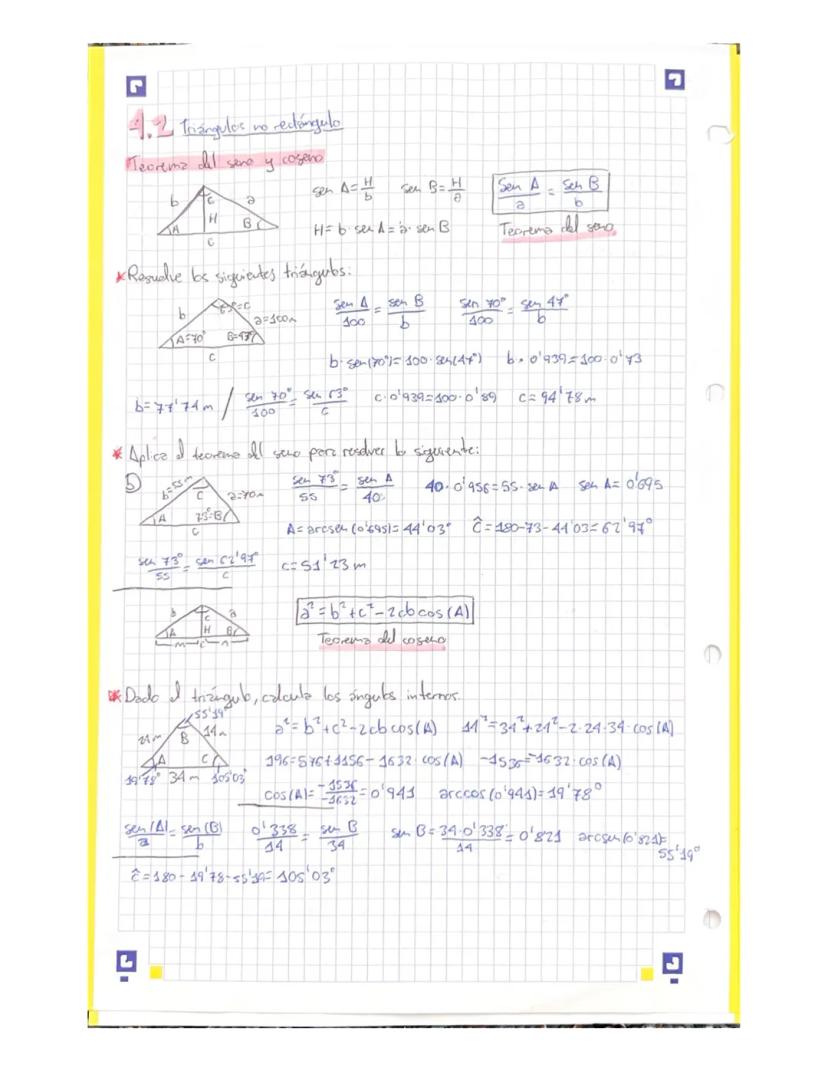 4.2 Triángulos no rectángulo
Teorema del seno y coseno
b C a
H
A B
c
sen A = H/b sen B = H/a
Sen A/a = Sen B/b
H = b · sen A = a · sen B
Teorema del seno.
* Resuelve los siguientes triángulos:
b 63º=C a=100m
A=70º B=47º
c
sen A/100 = sen B/b sen 70º/100 = sen 47º/b
b · sen(70º) = 100 · sen(47º) b · 0'939 = 100 · 0'73
b = 77'74 m / sen 70º/100 = sen 63º/c c · 0'939 = 100 · 0'89 c = 94'78 m
* Aplica el teorema del seno para resolver lo siguiente:
b)
b=55m C a=40m
A 73º=B
c
sen 73º/55 = sen A/40 40 · 0'956 = 55 · sen A sen A = 0'695
A = arcsen (0'695) = 44'03º Ĉ = 180-73-44'03 = 62'97º
sen 73º/55 = sen 62'97º/c c = 51'23 m
b C a
A H B
m c n
a² = b² + c² - 2cb cos(A)
Teorema del coseno
* Dado el triángulo, calcula los ángulos internos.
55'19º
24m B 14m
A C
19'78º 34 m 105'03º
a² = b² + c² - 2cb cos(A) 14² = 34² + 24² - 2 · 24 · 34 · cos(A)
196 = 576 + 1156 - 1632 · cos(A) -1536 = -1632 · cos(A)
cos(A) = -1536/-1632 = 0'941 arccos(0'941) = 19'78º
sen(A)/a = sen(B)/b 0'338/14 = sen B/34 sen B = 34 · 0'338/14 = 0'821 arcsen(0'821) =
55'19º
Ĉ = 180 - 19'78 - 55'19 = 105'03º